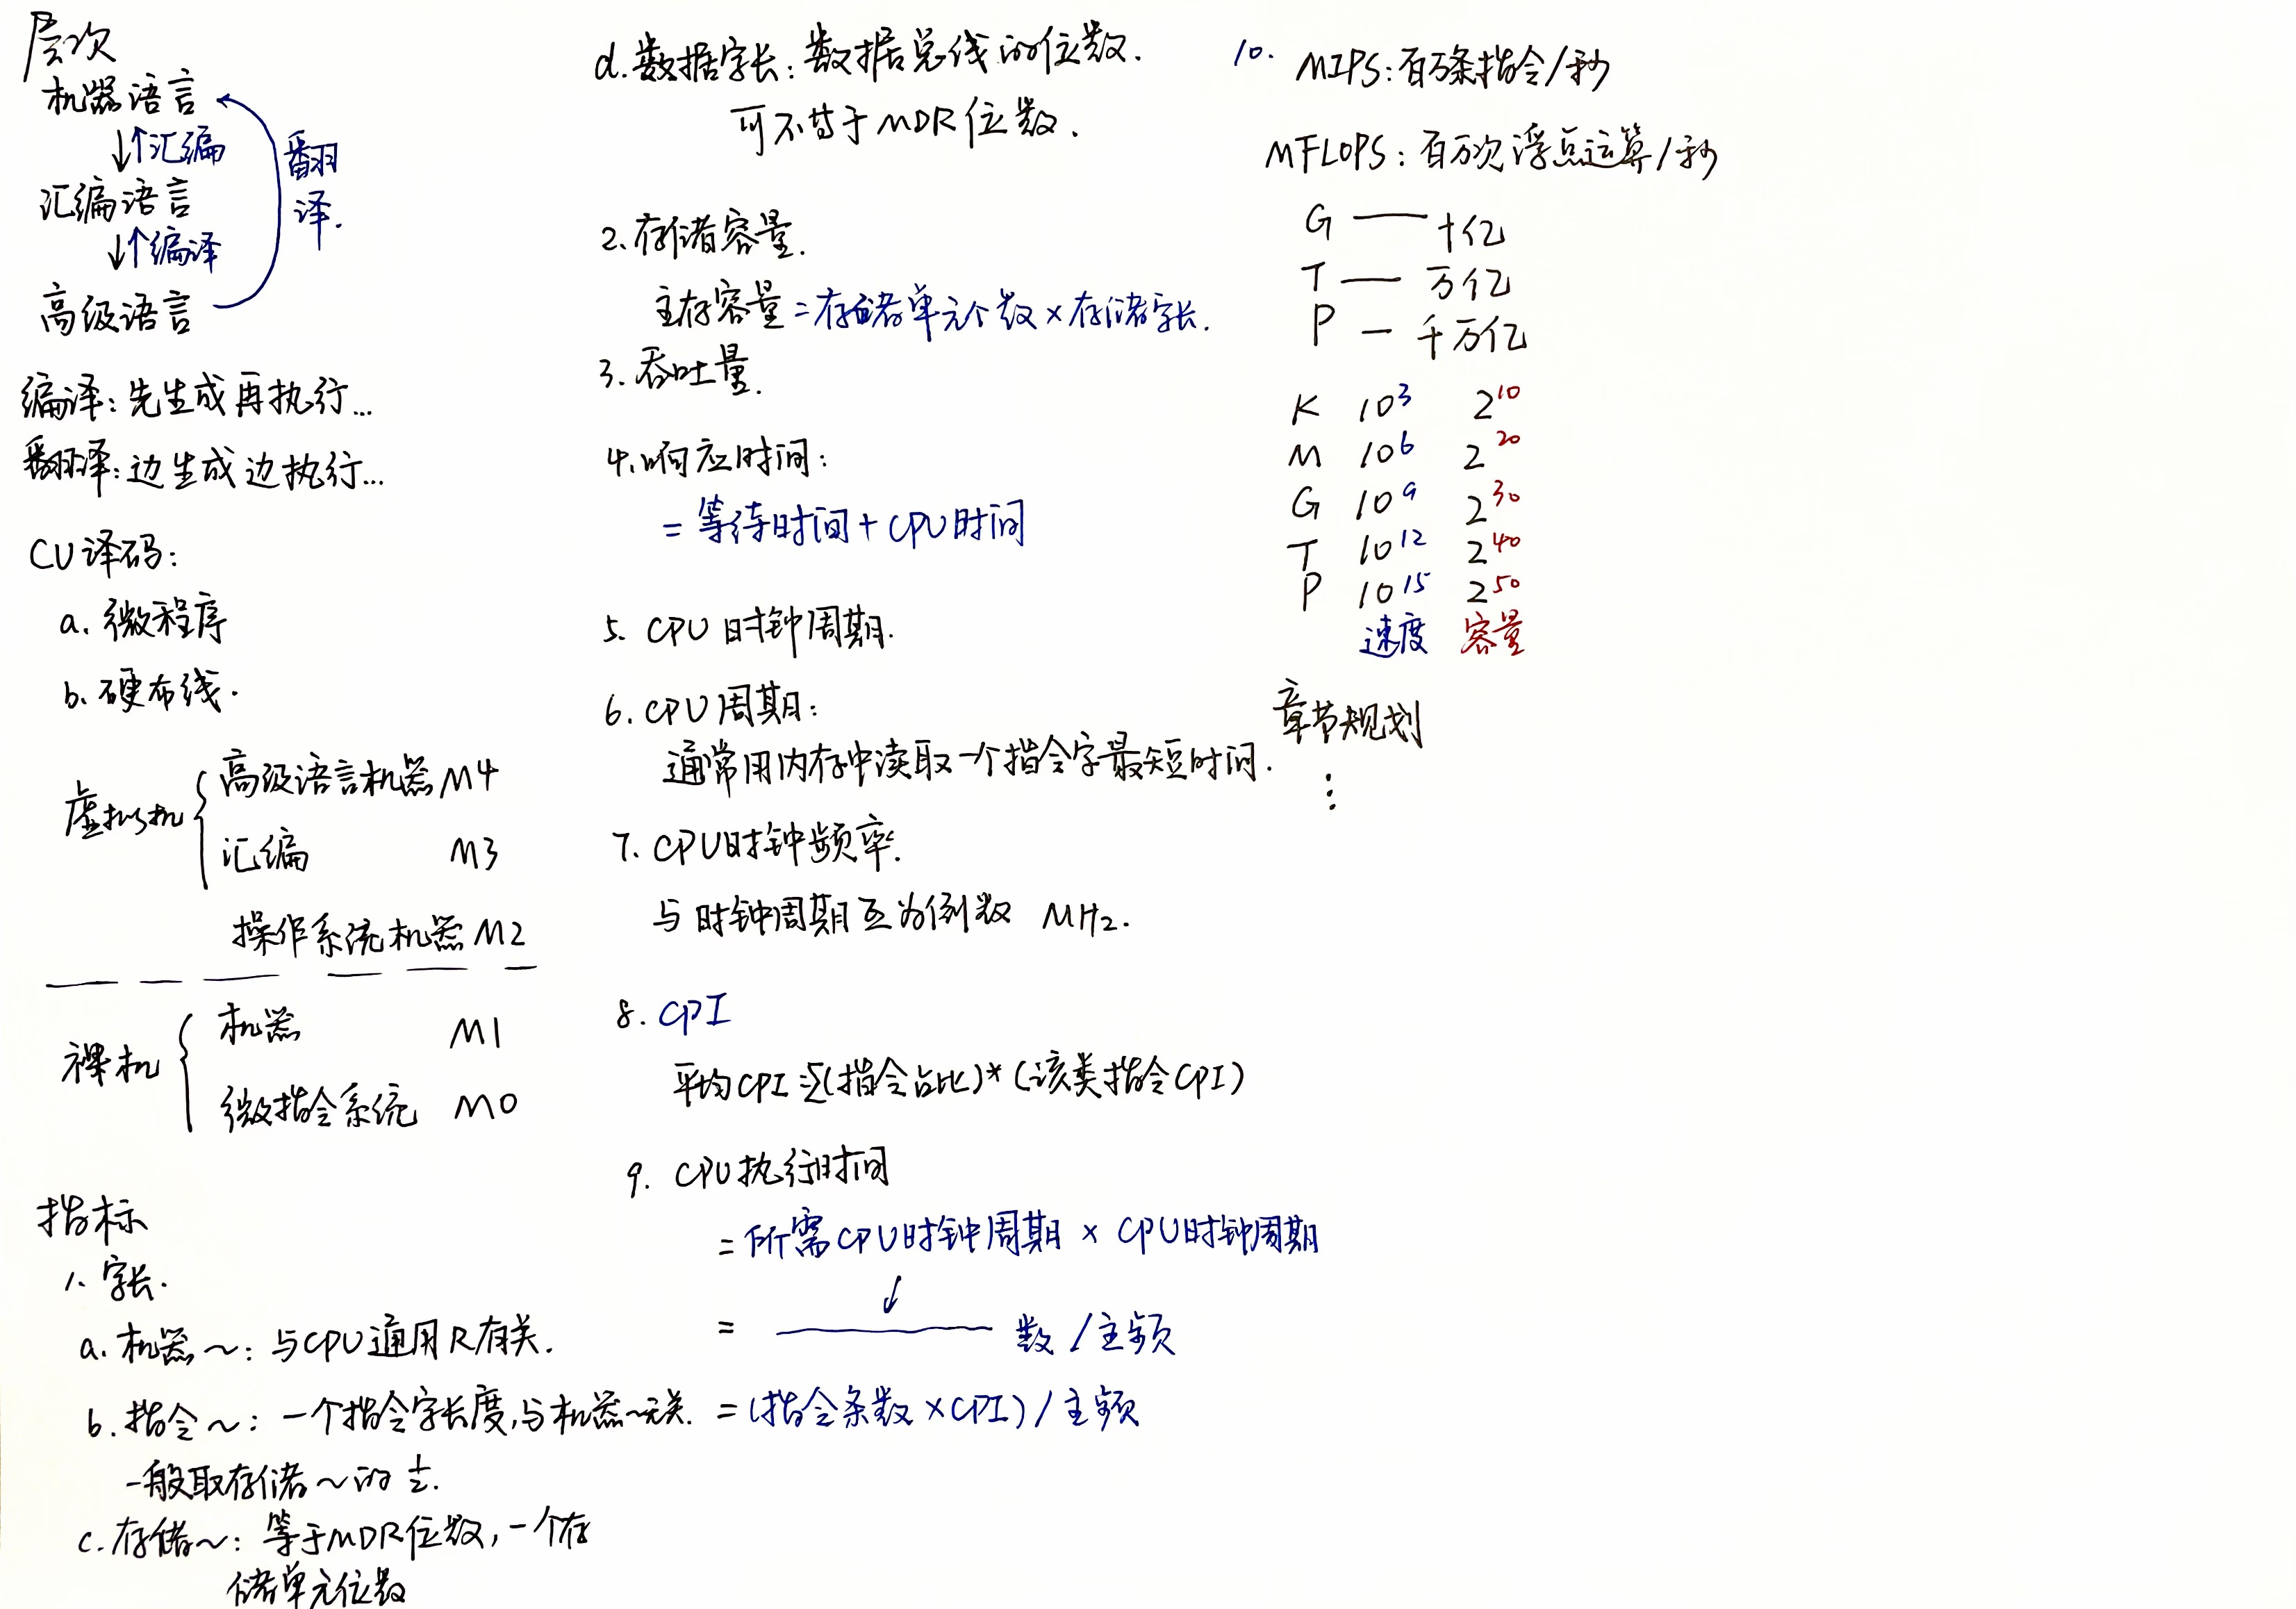 层次
机器语言
↓↑汇编
汇编语言
↓↑编译
高级语言
翻
译.
编译: 先生成再执行...
翻译: 边生成边执行...
CU译码:
a. 微程序
b. 硬布线.
虚拟机
高级语言机器 M4
汇编 M3
操作系统机器 M2
裸机
机器 M1
微指令系统 M0
指标
1. 字长.
a. 机器～: 与CPU通用R有关.
b. 指令～: 一个指令字长度,与机器～无关.
一般取存储～的 1/2.
c. 存储～: 等于MDR位数, 一个存
储单元位数
d. 数据字长: 数据总线的位数.
可不等于MDR位数.
2. 存储容量.
主存容量 = 存储单元个数 × 存储字长.
3. 吞吐量.
4. 响应时间:
= 等待时间 + CPU时间
5. CPU时钟周期.
6. CPU周期:
通常用内存中读取一个指令字最短时间.
7. CPU时钟频率.
与时钟周期互为倒数 MHz.
8. CPI
平均CPI=Σ(指令占比)*(该类指令CPI)
9. CPU执行时间
= 所需CPU时钟周期 × CPU时钟周期
= 数 / 主频
= (指令条数 × CPI) / 主频
10. MIPS: 百万条指令/秒
MFLOPS: 百万次浮点运算/秒
G — 十亿
T — 万亿
P — 千万亿
K 10³ 2¹⁰
M 10⁶ 2²⁰
G 10⁹ 2³⁰
T 10¹² 2⁴⁰
P 10¹⁵ 2⁵⁰
速度 容量
章节规划
⋮